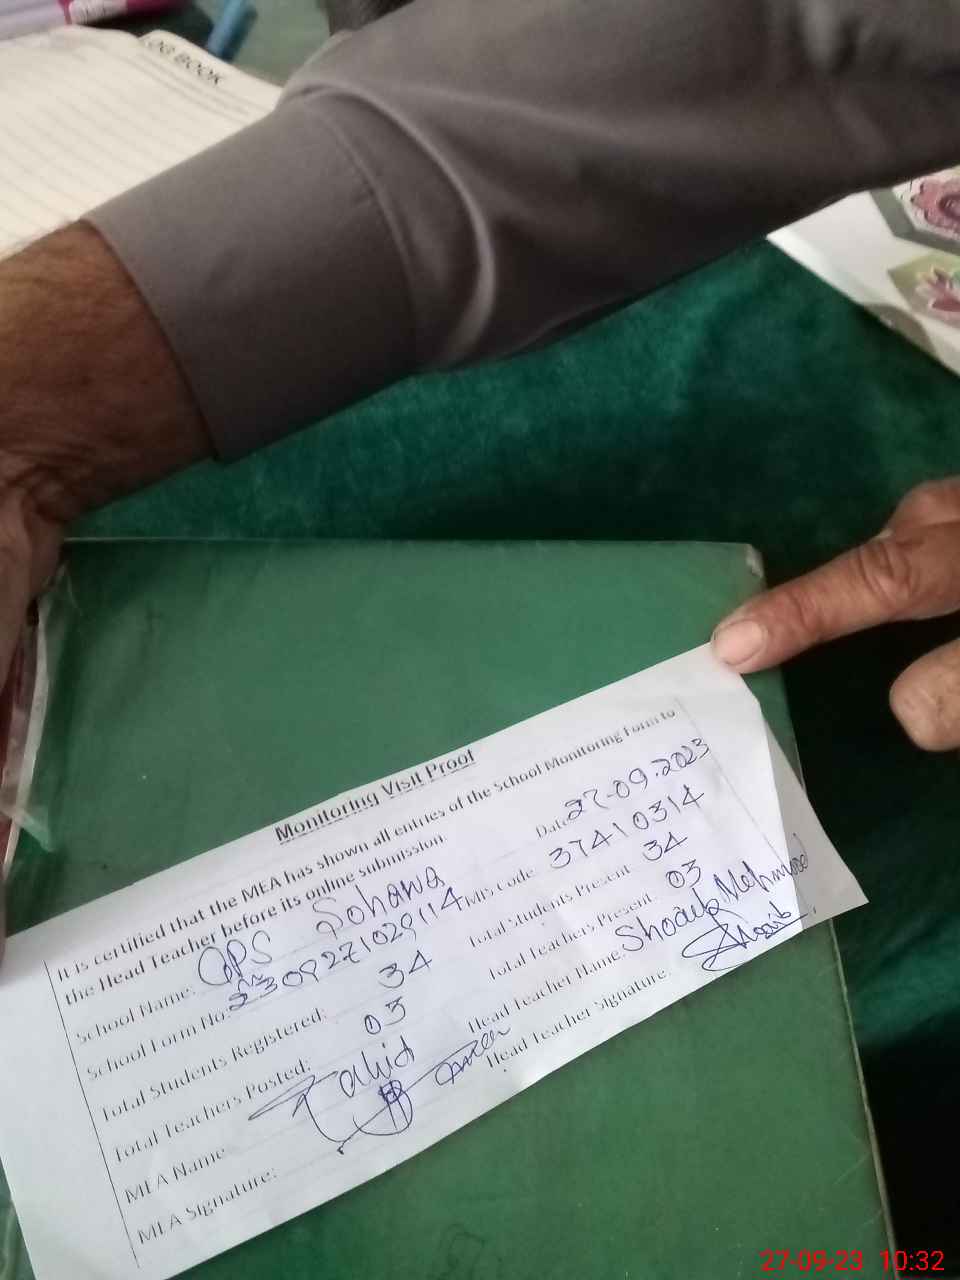 LOG BOOK
Monitoring Visit Proof
It is certified that the MEA has shown all entries of the School Monitoring Form to
the Head Teacher before its online submission.
School Name: GPS Sohawa Date 27-09-2023
School Form No: 2309271029114 EMIS Code: 37410314
Total Students Registered: 34 Total Students Present 34
Total Teachers Posted: 03 Total Teachers Present: 03
MEA Name Head Teacher Name: Shoaib Mehmood
MEA Signature: Head Teacher Signature: Shoaib
27-09-23 10:32